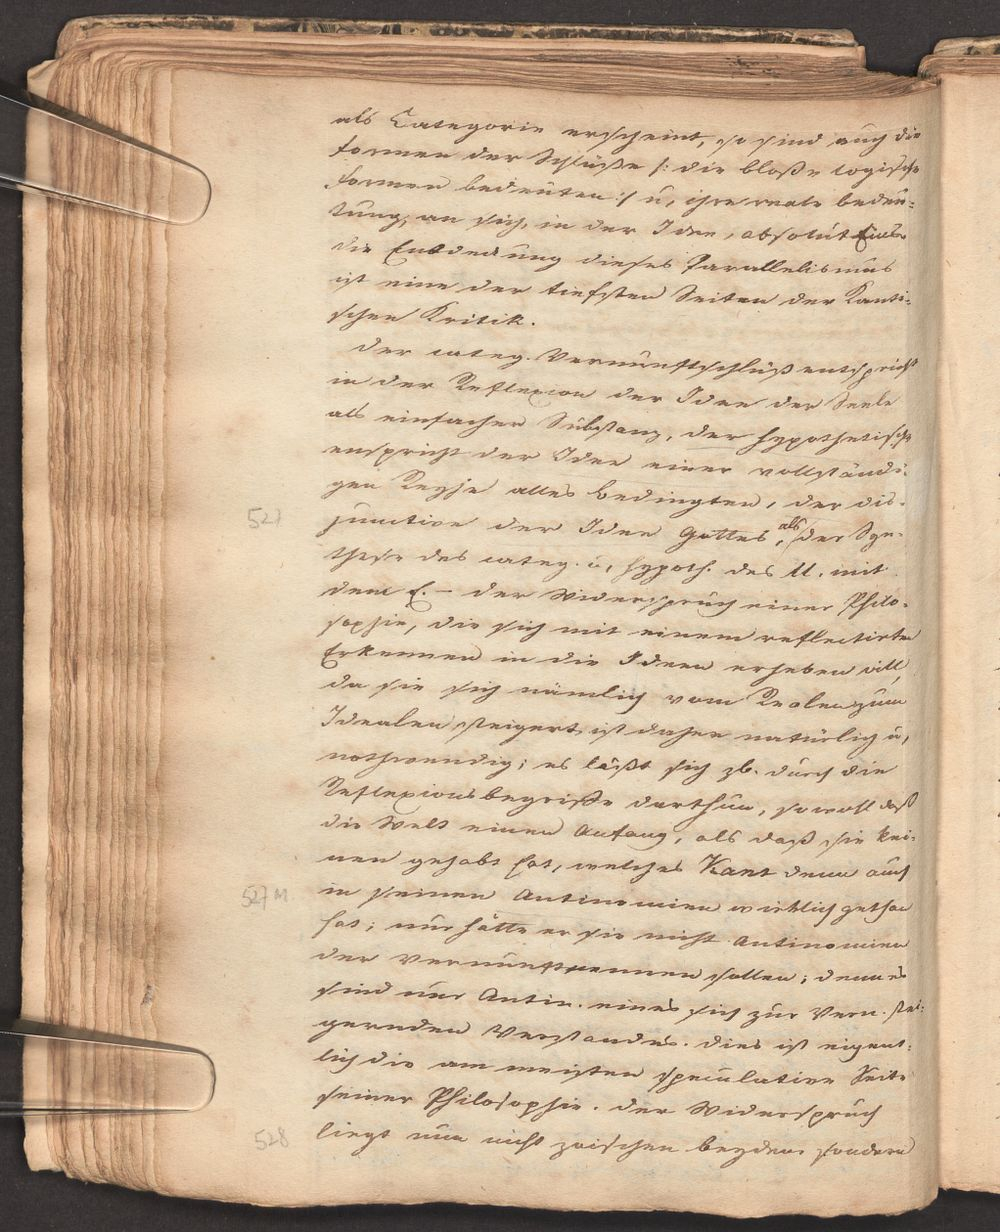 als Categorie erscheint, so sind auch die
Formen der Schlüße /: die bloße logische
Formen bedeuten :/ u, ihre reale bedeu-
tung, an sich, in der Idee, absolut Eins.
die Entdeckung dieses Parallelismus
ist eine der tiefsten Seiten der Kanti-
schen Kritik.
der categ. Vernunftschluß entspricht
in der Reflexion der Idee der Seele
als einfacher Substanz, der hypothetische
enspricht der Idee einer vollständi-
gen Reyhe alles bedingten, der dis-
527
junctive der Idee Gottes, als der Syn-
these des categ. u, hypoth. des U. mit
dem E. – der Widerspruch einer Philo-
sophie, die sich mit einem reflectirten
Erkennen in die Ideen erheben will,
da sie sich nämlich vom Realen zum
Idealen steigert, ist daher natürlich u,
nothwendig; es läßt sich zb. durch die
Reflexionsbegriffe darthun, sowohl daß
die Welt einen Anfang, als daß sie kei-
nen gehabt hat, welches Kant denn auch
527 M.
in seinen Antinomien wirklich gethan
hat; nur hätte er sie nicht Antinomien
der Vernunft nennen sollen; denn es
sind nur Antin. eines sich zur Vern. stei-
gernden Verstandes. dies ist eigent-
lich die am meisten speculative Seite
seiner Philosophie. der Widerspruch
528
liegt nun nicht zwischen beyden, sondern